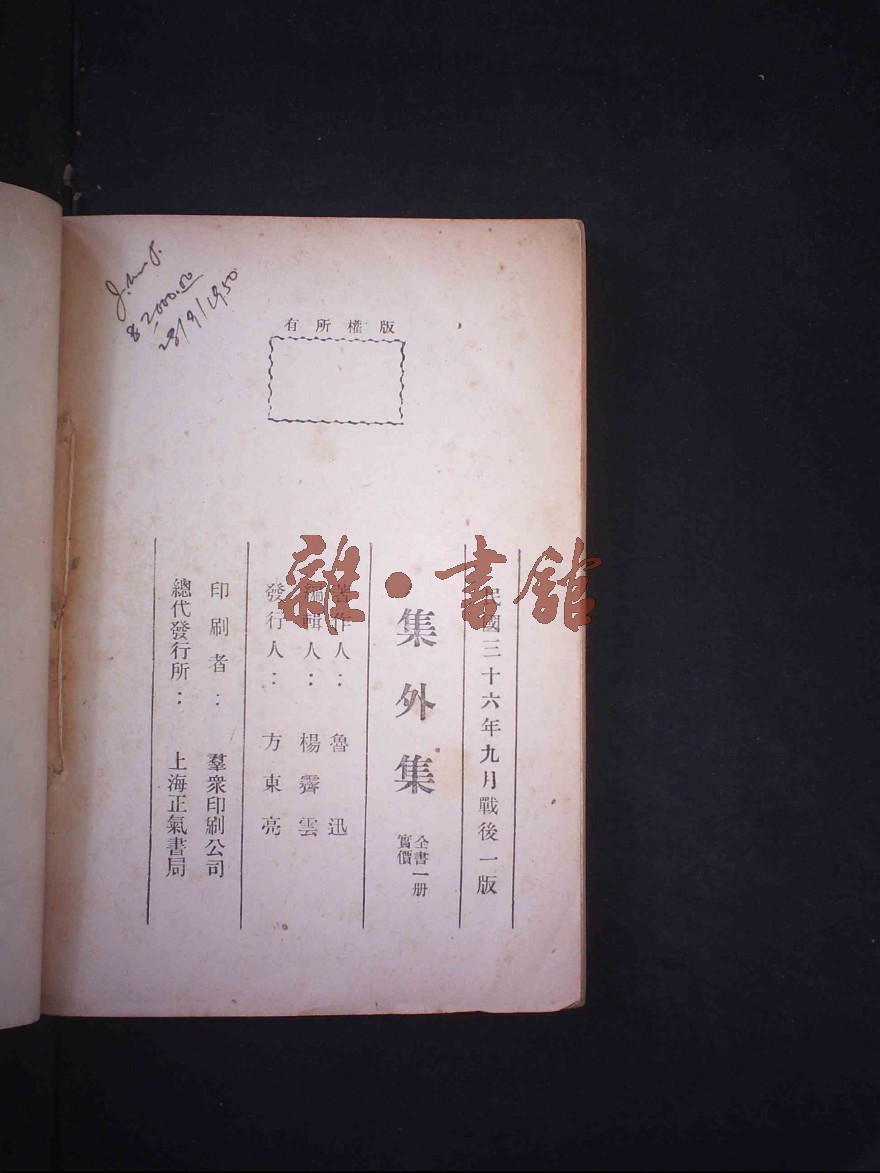 2000.00
28/9/1950
有所權版
民國三十六年九月戰後一版
集外集
全書一册
實價
著作人：魯迅
編輯人：楊霽雲
發行人：方東亮
印刷者：羣衆印刷公司
總代發行所：上海正氣書局
雜·書館